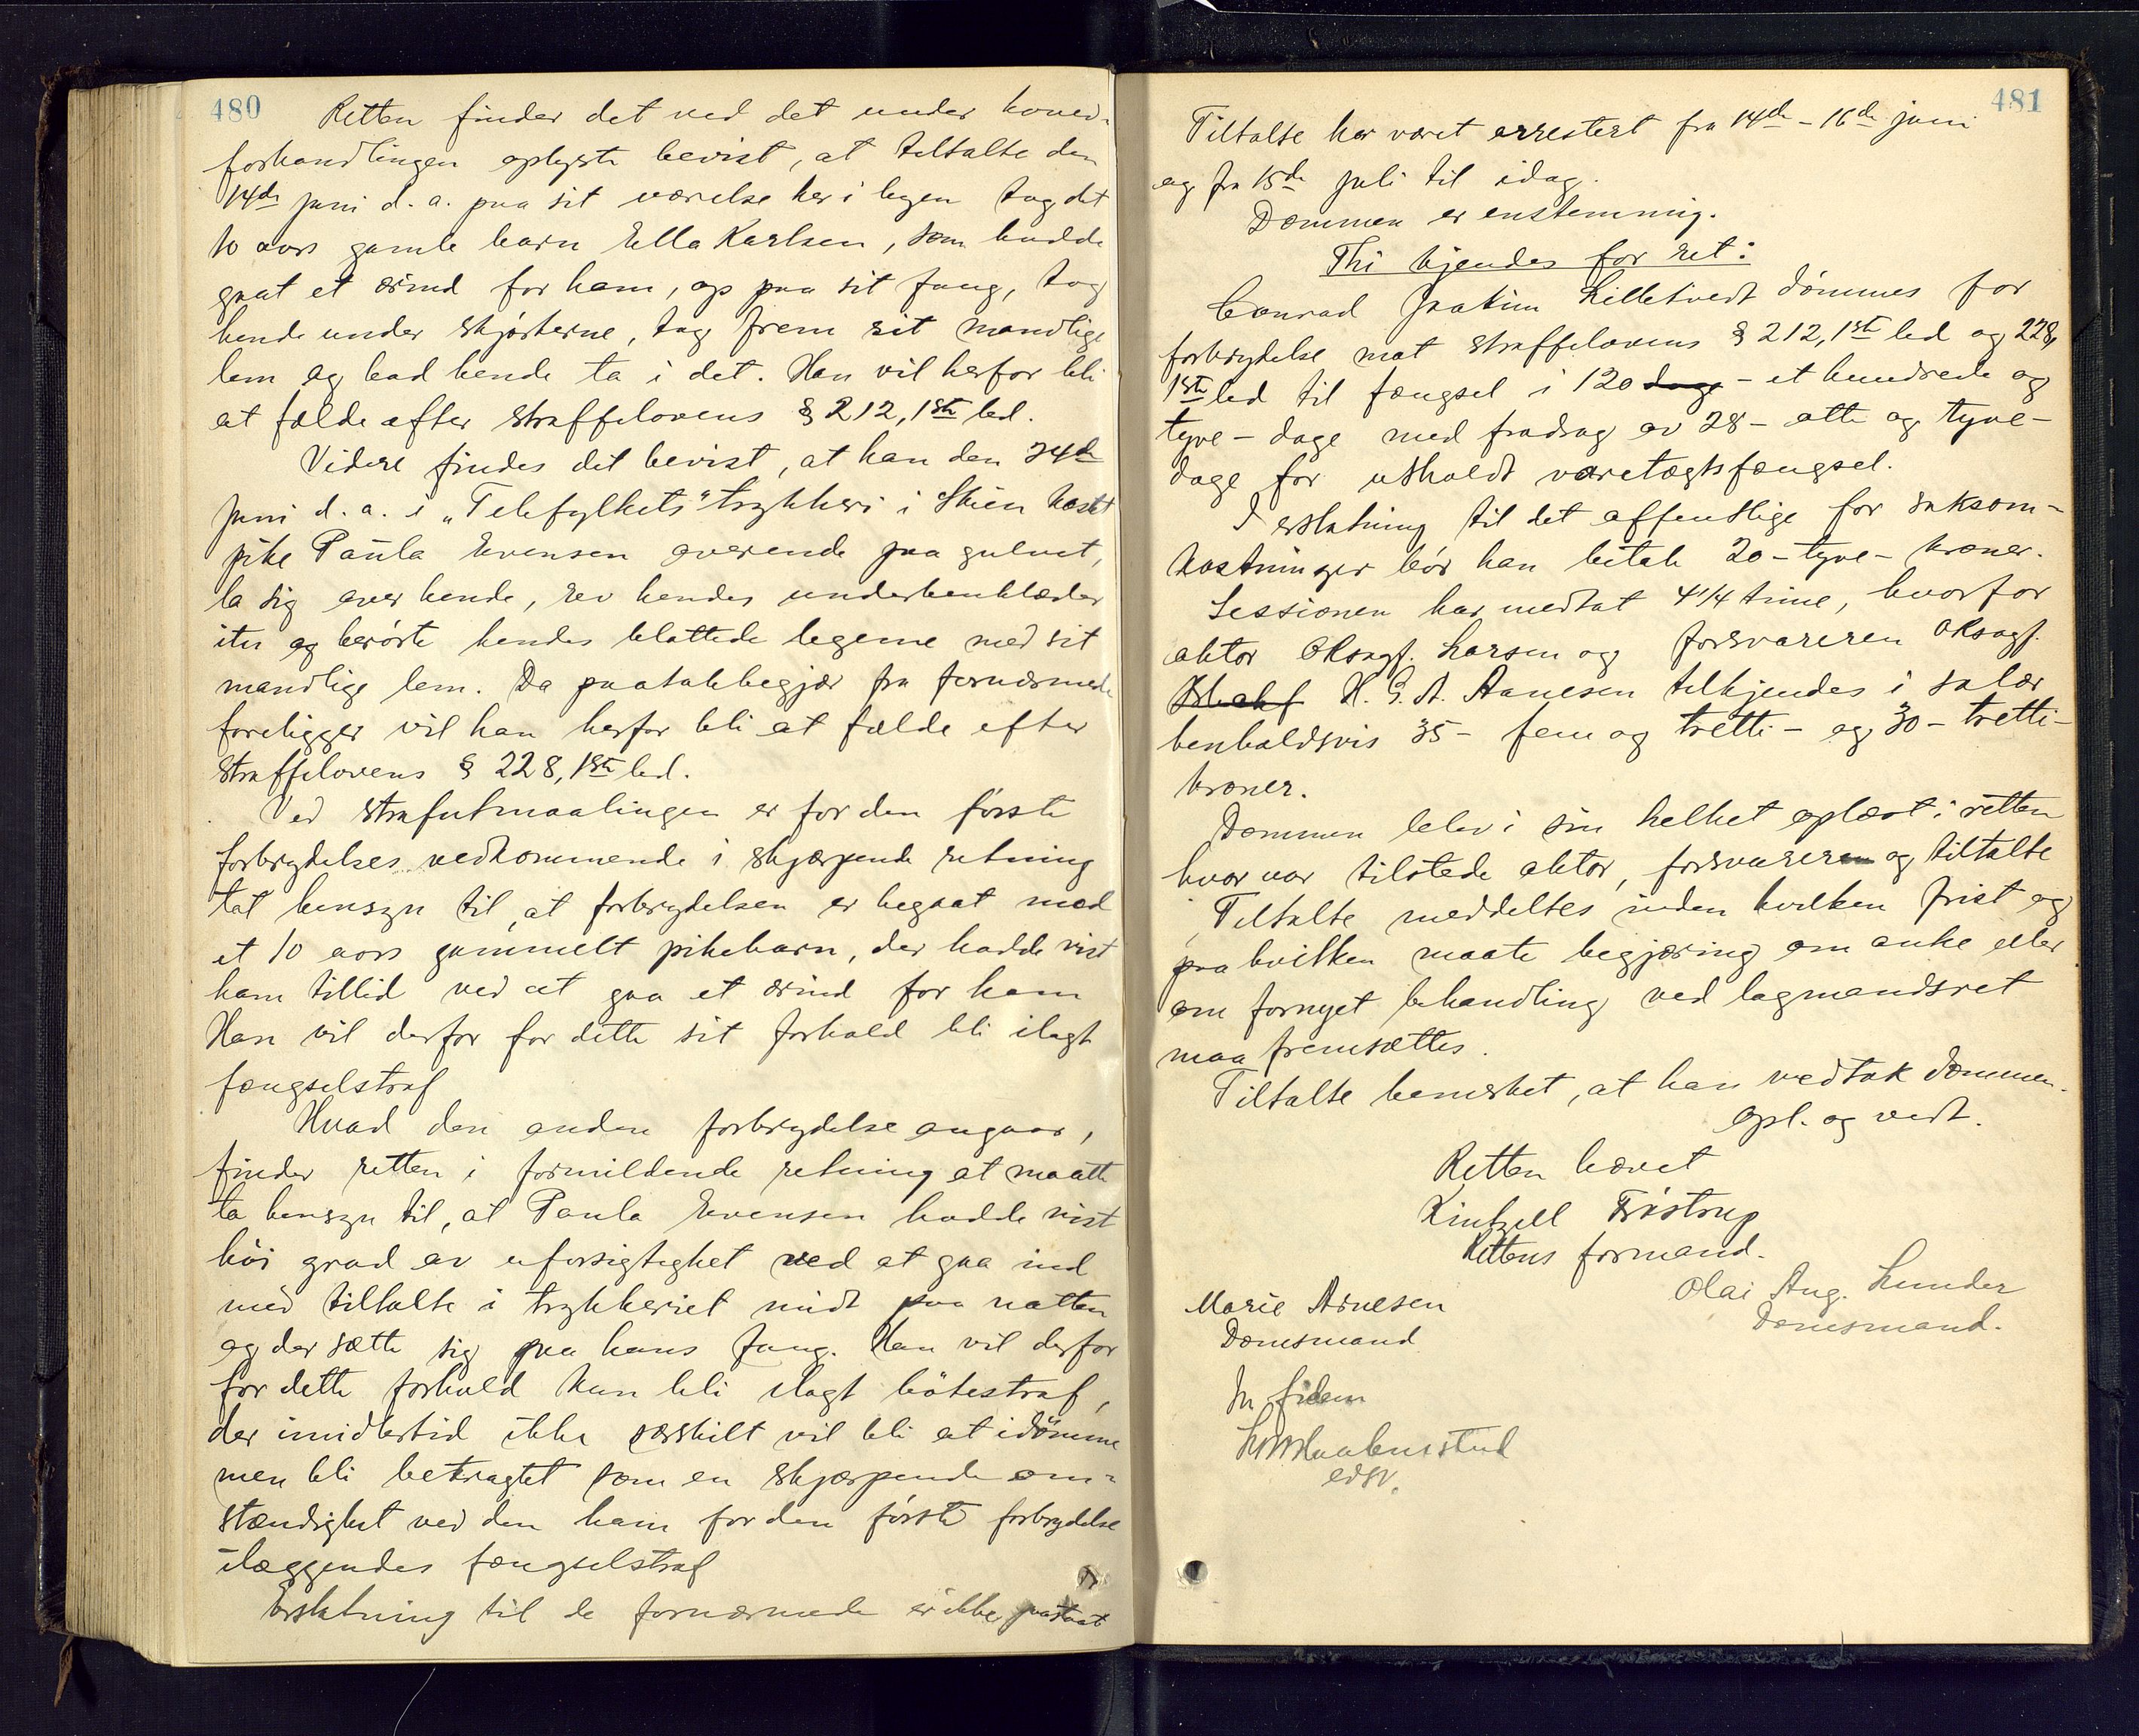 480
Retten finder det ved det under hoved-
forhandlingen oplyste bevist, at tiltalte den
14de juni d. a. paa sit værelse her i byen tog det
10 aars gamle barn Ella Karlsen, som hadde
gaat et ærind for ham, op paa sit fang, tog
hende under skjørterne, tog frem sit mandlige
lem og bad hende ta i det. Han vil herfor bli
at fælde efter straffelovens § 212, 1ste led.
Videre findes det bevist, at han den 24de
juni d. a. i „Telefylkets" trykkeri i Skien kastet
pike Paula Evensen overende paa gulvet,
la sig over hende, rev hendes underbenklæder
itu og berørte hendes blottede legeme med sit
mandlige lem. Da paatalebegjær fra fornærmede
foreligger vil han herfor bli at fælde efter
straffelovens § 228, 1ste led.
Ved strafutmaalingen er for den første
forbrydelses vedkommende i skjærpende retning
tat hensyn til, at forbrydelsen er begaat mod
et 10 aars gammelt pikebarn, der hadde vist
ham tillid ved at gaa et ærind for ham
Han vil derfor for dette sit forhold bli ilagt
fængselstraf
Hvad den anden forbrydelse angaar,
finder retten i formildende retning at maatte
ta hensyn til, at Paula Evensen hadde vist
høi grad av uforsigtighet ved at gaa ind
med tiltalte i trykkeriet midt paa natten
og der sætte sig paa hans fang. Han vil derfor
for dette forhold kun bli ilagt bøtestraf,
der imidlertid ikke særskilt vil bli at idømme
men bli betragtet som en skjærpende om-
stændighet ved den ham for den første forbrydelse
ilæggendes fængselstraf
Erstatning til de fornærmede er ikke paastaat
481
Tiltalte har været arrestert fra 14de - 16de juni
og fra 15de juli til idag.
Dommen er enstemmig.
Thi kjendes for ret:
Conrad Joakim Lilletvedt dømmes for
forbrydelse mot straffelovens § 212, 1ste led og 228,
1ste led til fængsel i 120 dage - et hundrede og
tyve - dage med fradrag av 28 - otte og tyve -
dage for utholdt varetægtsfængsel.
I erstatning til det offentlige for saksom-
kostninger bør han betale 20 - tyve - kroner.
Sessionen har medtat 4 1/4 time, hvorfor
aktor Oksagf. Larsen og forsvareren Oksagf.
H. G. A. Aanesen tilkjendes i salær
henholdsvis 35 - fem og tretti - og 30 - tretti -
kroner.
Dommen blev i sin helhet oplæst i retten
hvor var tilstede aktor, forsvareren og tiltalte
Tiltalte meddeltes inden hvilken frist og
paa hvilken maate begjæring om anke eller
om fornyet behandling ved lagmandsret
maa fremsættes.
Tiltalte bemerket, at han vedtok dommen.
Opl. og vedt.
Retten hævet
Kintzell Frøstrup
Rettens formand.
Olai Aug. Lunder
Domsmand.
Marie Arnesen
Domsmand
In fidem
edsv.